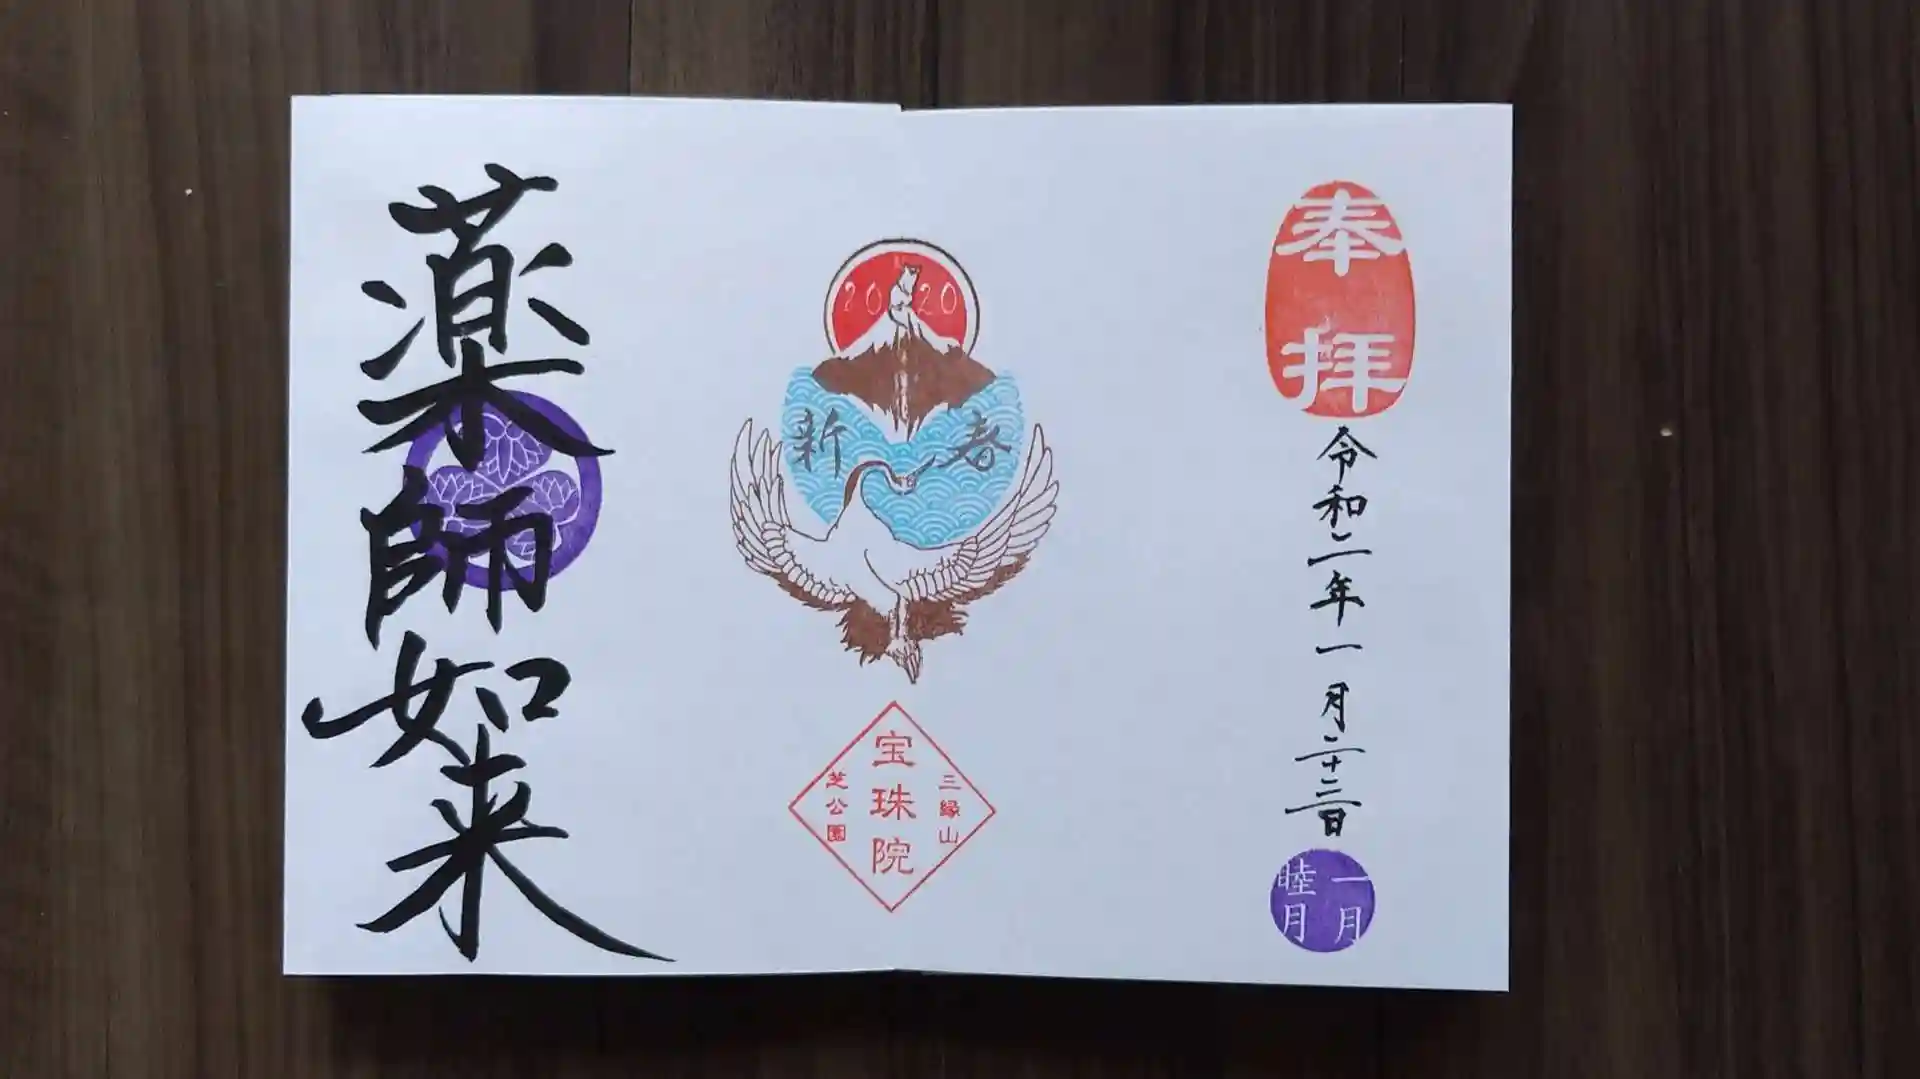 奉拝
令和二年一月二十三日
一月
睦月
2020
新春
三縁山
宝珠院
芝公園
薬師如来